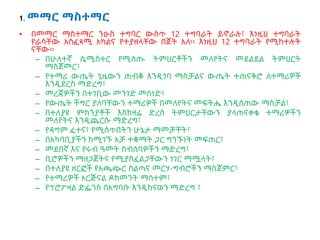 1. መማር ማስተማር
• በመማር ማስተማር ንዑስ ተግባር ውስጥ 12 ተግባራት ይኖራሉ፤ እነዚህ ተግባራት
የራሳቸው አስፈጻሚ አካልና የተያዘላቸው በጀት አለ፡፡ እነዚህ 12 ተግባራት የሚከተሉት
ናቸው፡፡
– በሁለተኛ ሴሚስተር የሚሰጡ ትምህርቶችን መለየትና መደልደል ትምህርት
ማስጀመር፤
– የተማሪ ውጤት ጊዜውን ጠብቆ እንዲገባ ማስቻልና ውጤት ተጠናቅሮ ለተማሪዎች
እንዲደርስ ማድረግ፤
– መረጃዎችን በተገቢው መንገድ መሰነድ፤
– የውጤት ችግር ያለባቸውን ተማሪዎች በመለየትና መፍትሔ እንዲሰጠው ማስቻል፤
– በተለያዩ ምክንያቶች እስከዛሬ ድረስ ትምህርታቸውን ያላጠናቀቁ ተማሪዎችን
መለየትና እንዲጨርሱ ማድረግ፤
– የዳግም ፈተናና የሚሰጥበትን ሁኔታ ማመቻቸት፤
– በአካባቢያችን ከሚገኙ አቻ ተቋማት ጋር ግንኙነት መፍጠር፤
– መደበኛ እና የሩብ ዓመት ስብሰባዎችን ማድረግ፤
– ቢሮዎችን ማዘጋጀትና የሚያስፈልጋቸውን ነገር ማሟላት፤
– በተለያዩ ዘርፎች የአጫጭር ስልጠና መርሃ-ግብሮችን ማስጀመር፤
– የተማሪዎች ኦርጅናል ዶክመንት ማሳተም፤
– የፕሮፖዛል ድፌንስ በአግባቡ እንዲከናወን ማድረግ ፤